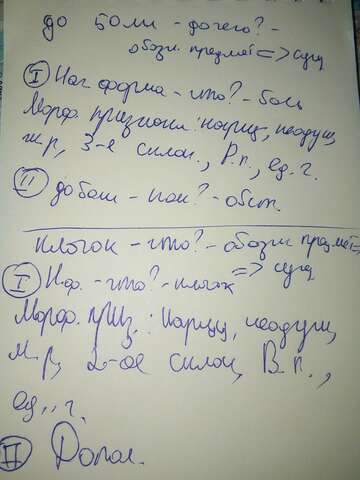 до боли - до чего? -
обозн. предмет => сущ
I Нач. форма - что? - боль
Морф. признаки: нариц., неодуш,
ж.р, 3-е склон., Р.п., ед. ч.
II до боли - как? - обст.
клочок - что? - обозн предмет
=> сущ
I Н.ф. - что? - клочок
Морф. приз.: нариц, неодуш,
м.р, 2-ое склон, В.п.,
ед., ч.
II Допол.